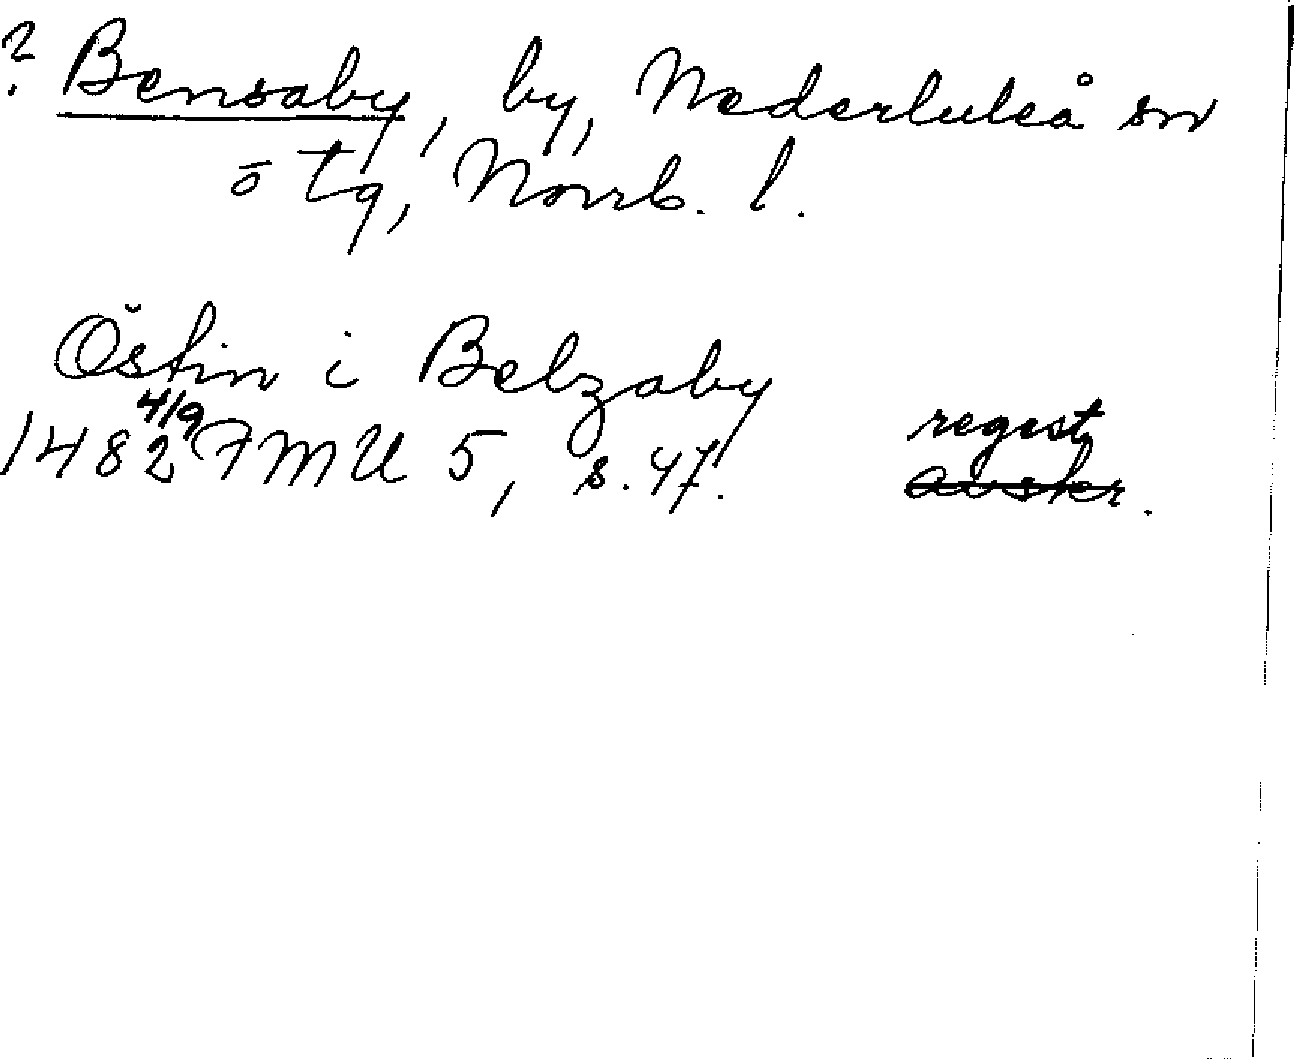 ? Bensaby, by, Nederluleå sn
ö tg, Norrb. l.
Östin i Belzaby
4/9
1482 FMU 5, s. 47.
regest
avskr.